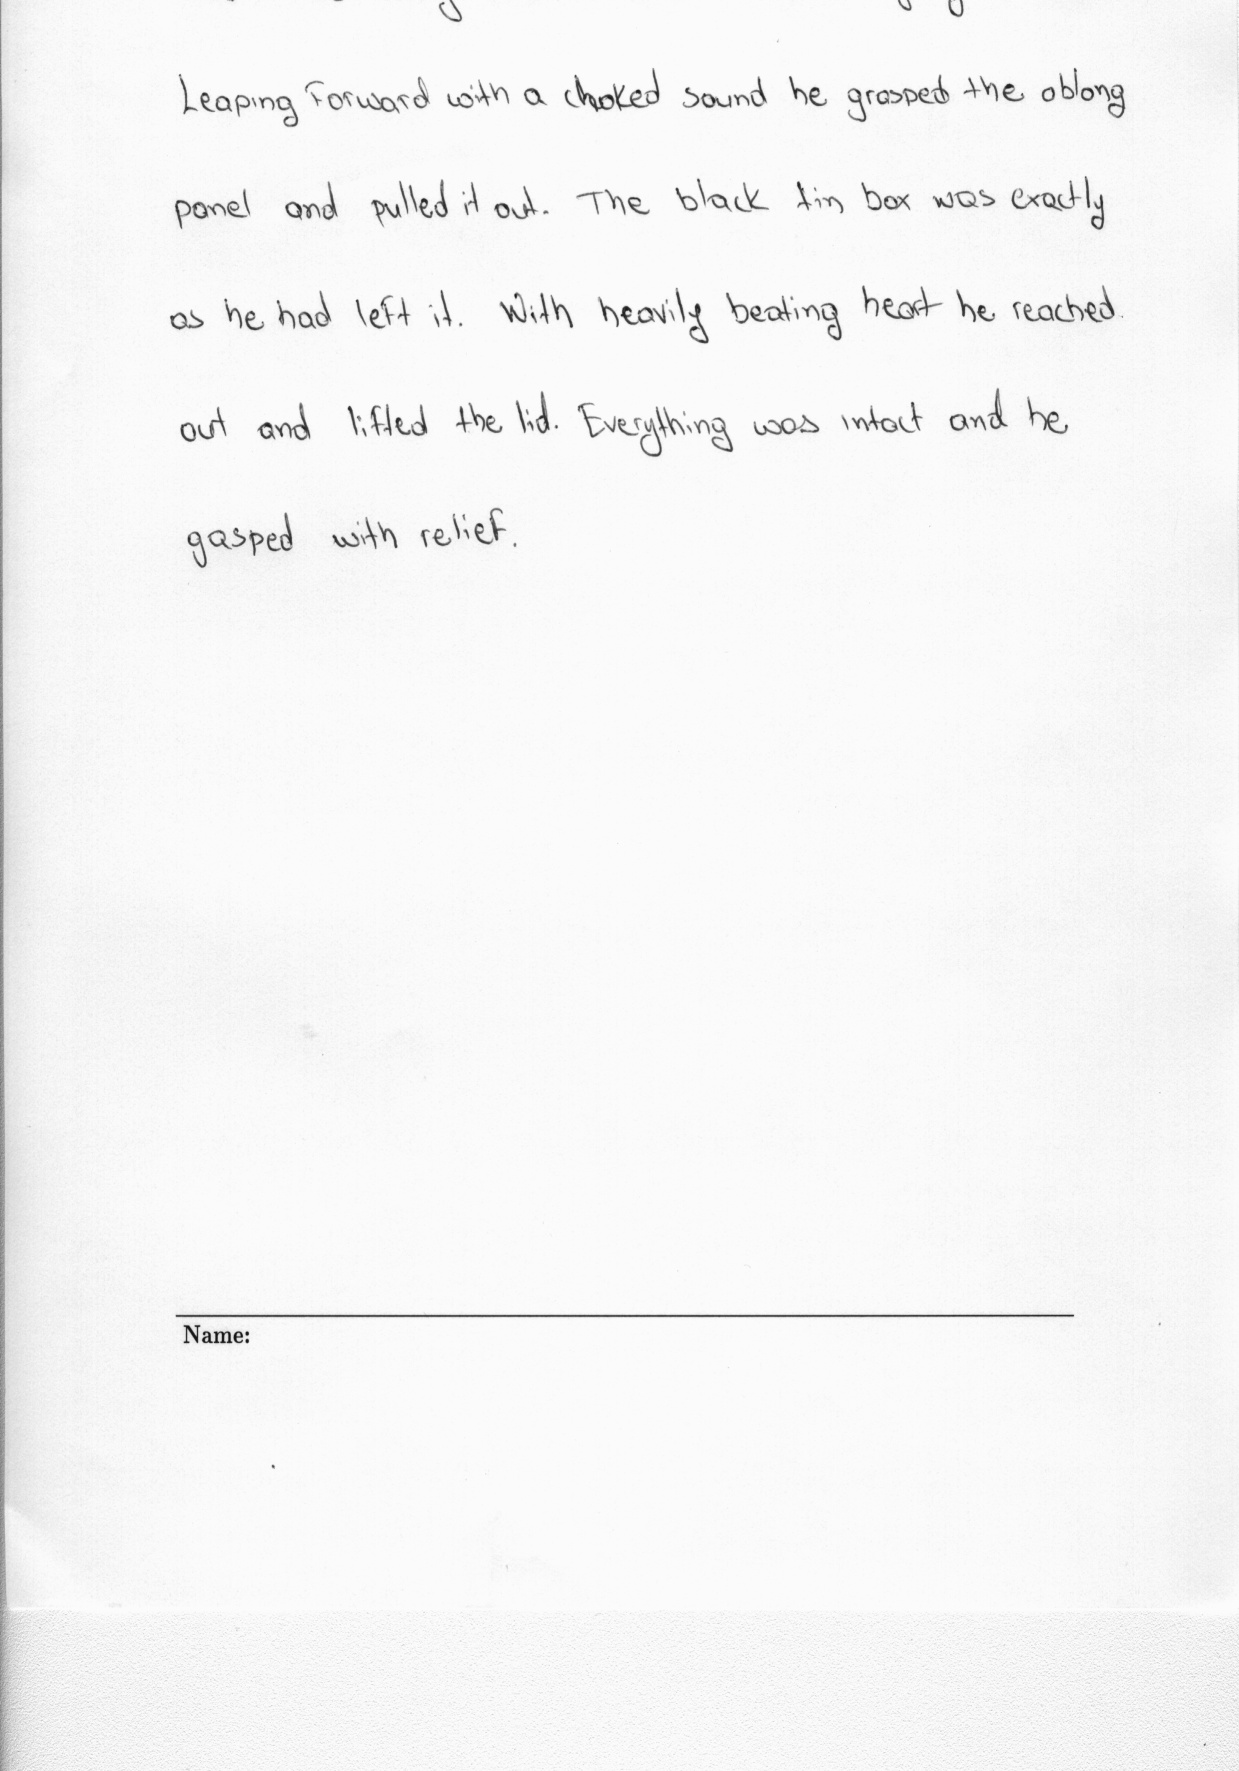 Leaping Forward with a choked sound he grasped the oblong
panel and pulled it out. The black tin box was exactly
as he had left it. With heavily beating heart he reached
out and lifted the lid. Everything was intact and he
gasped with relief.
Name: